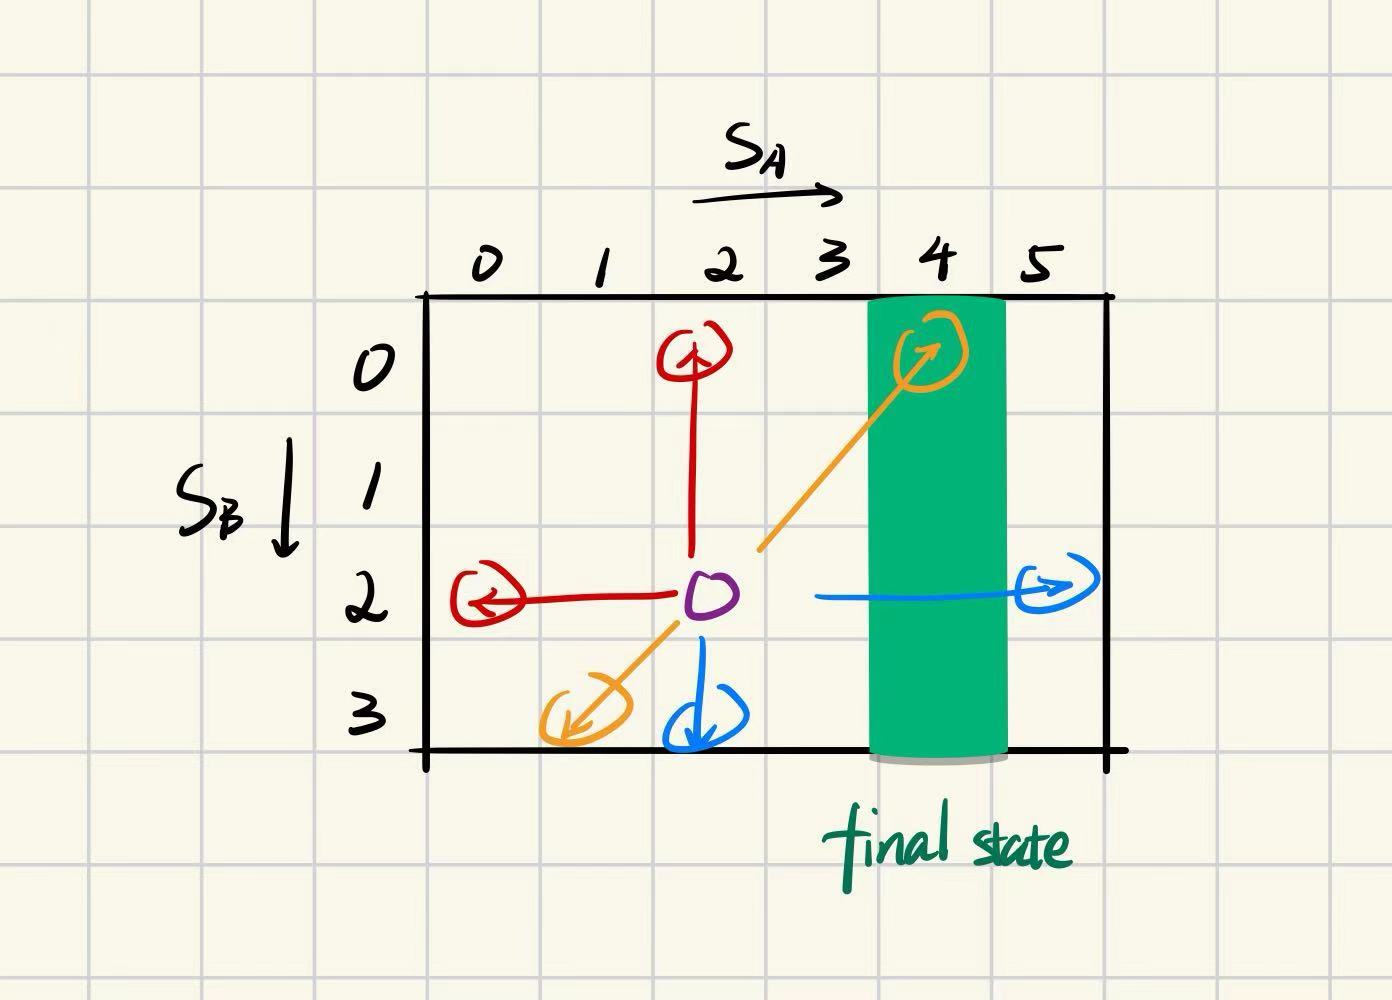 SA
0 1 2 3 4 5
0
1
SB
2
3
final state